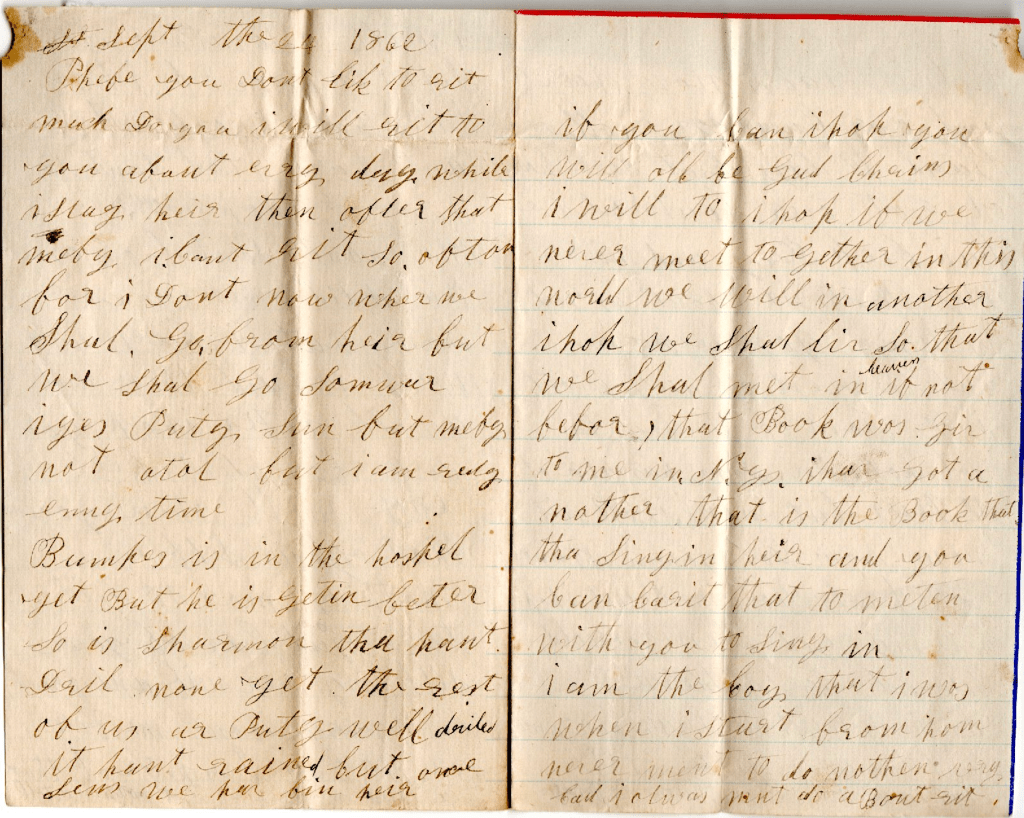 Sept the 24 1862
Phebe you Dont lik to rit
much Do you i will rit to
you about evry day while
i stay heir then after that
meby i cant rit so. ofton
for i Dont now wher we
Shal. Go. from heir but
we shal Go Somwar
i ges Puty Sun but meby
not atal but i am redy
enny time
Bumpes is in the hospel
yet But he is getin beter
So is Sharmon tha hant.
Dril none yet. the rest
of us ar Puty well
it hant rained but once
Sens we hav bin heir
if you can i hop you
will all be Gud Chrins
i will to i hop if we
never meet to gether in this
world we will in another
i hop we Shal liv So. that
we Shal met in heaven if not
befor, that Book was. giv
to me in. N. y. i hav got a
nother that is the Book that
tha Sing in heir and you
can carit that to meten
with you to Sing in
i am the boy that i was
when i start from hom
never ment to do nothen very
bad i alwas ment do a Bout rit.